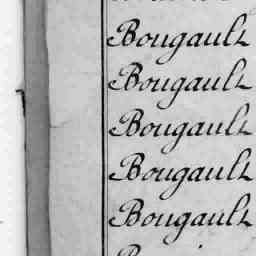 Bougault
Bougault
Bougault
Bougault
Bougault